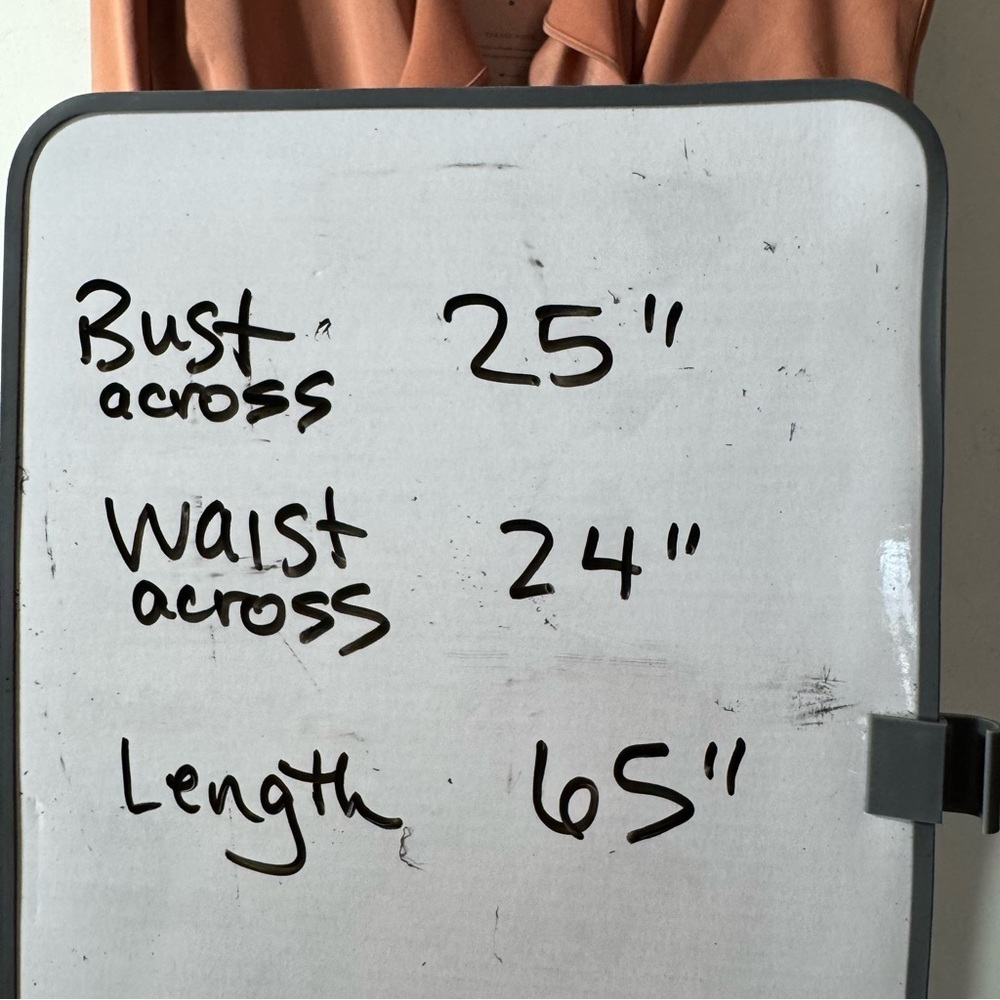 Bust 25"
across
Waist 24"
across
Length 65"